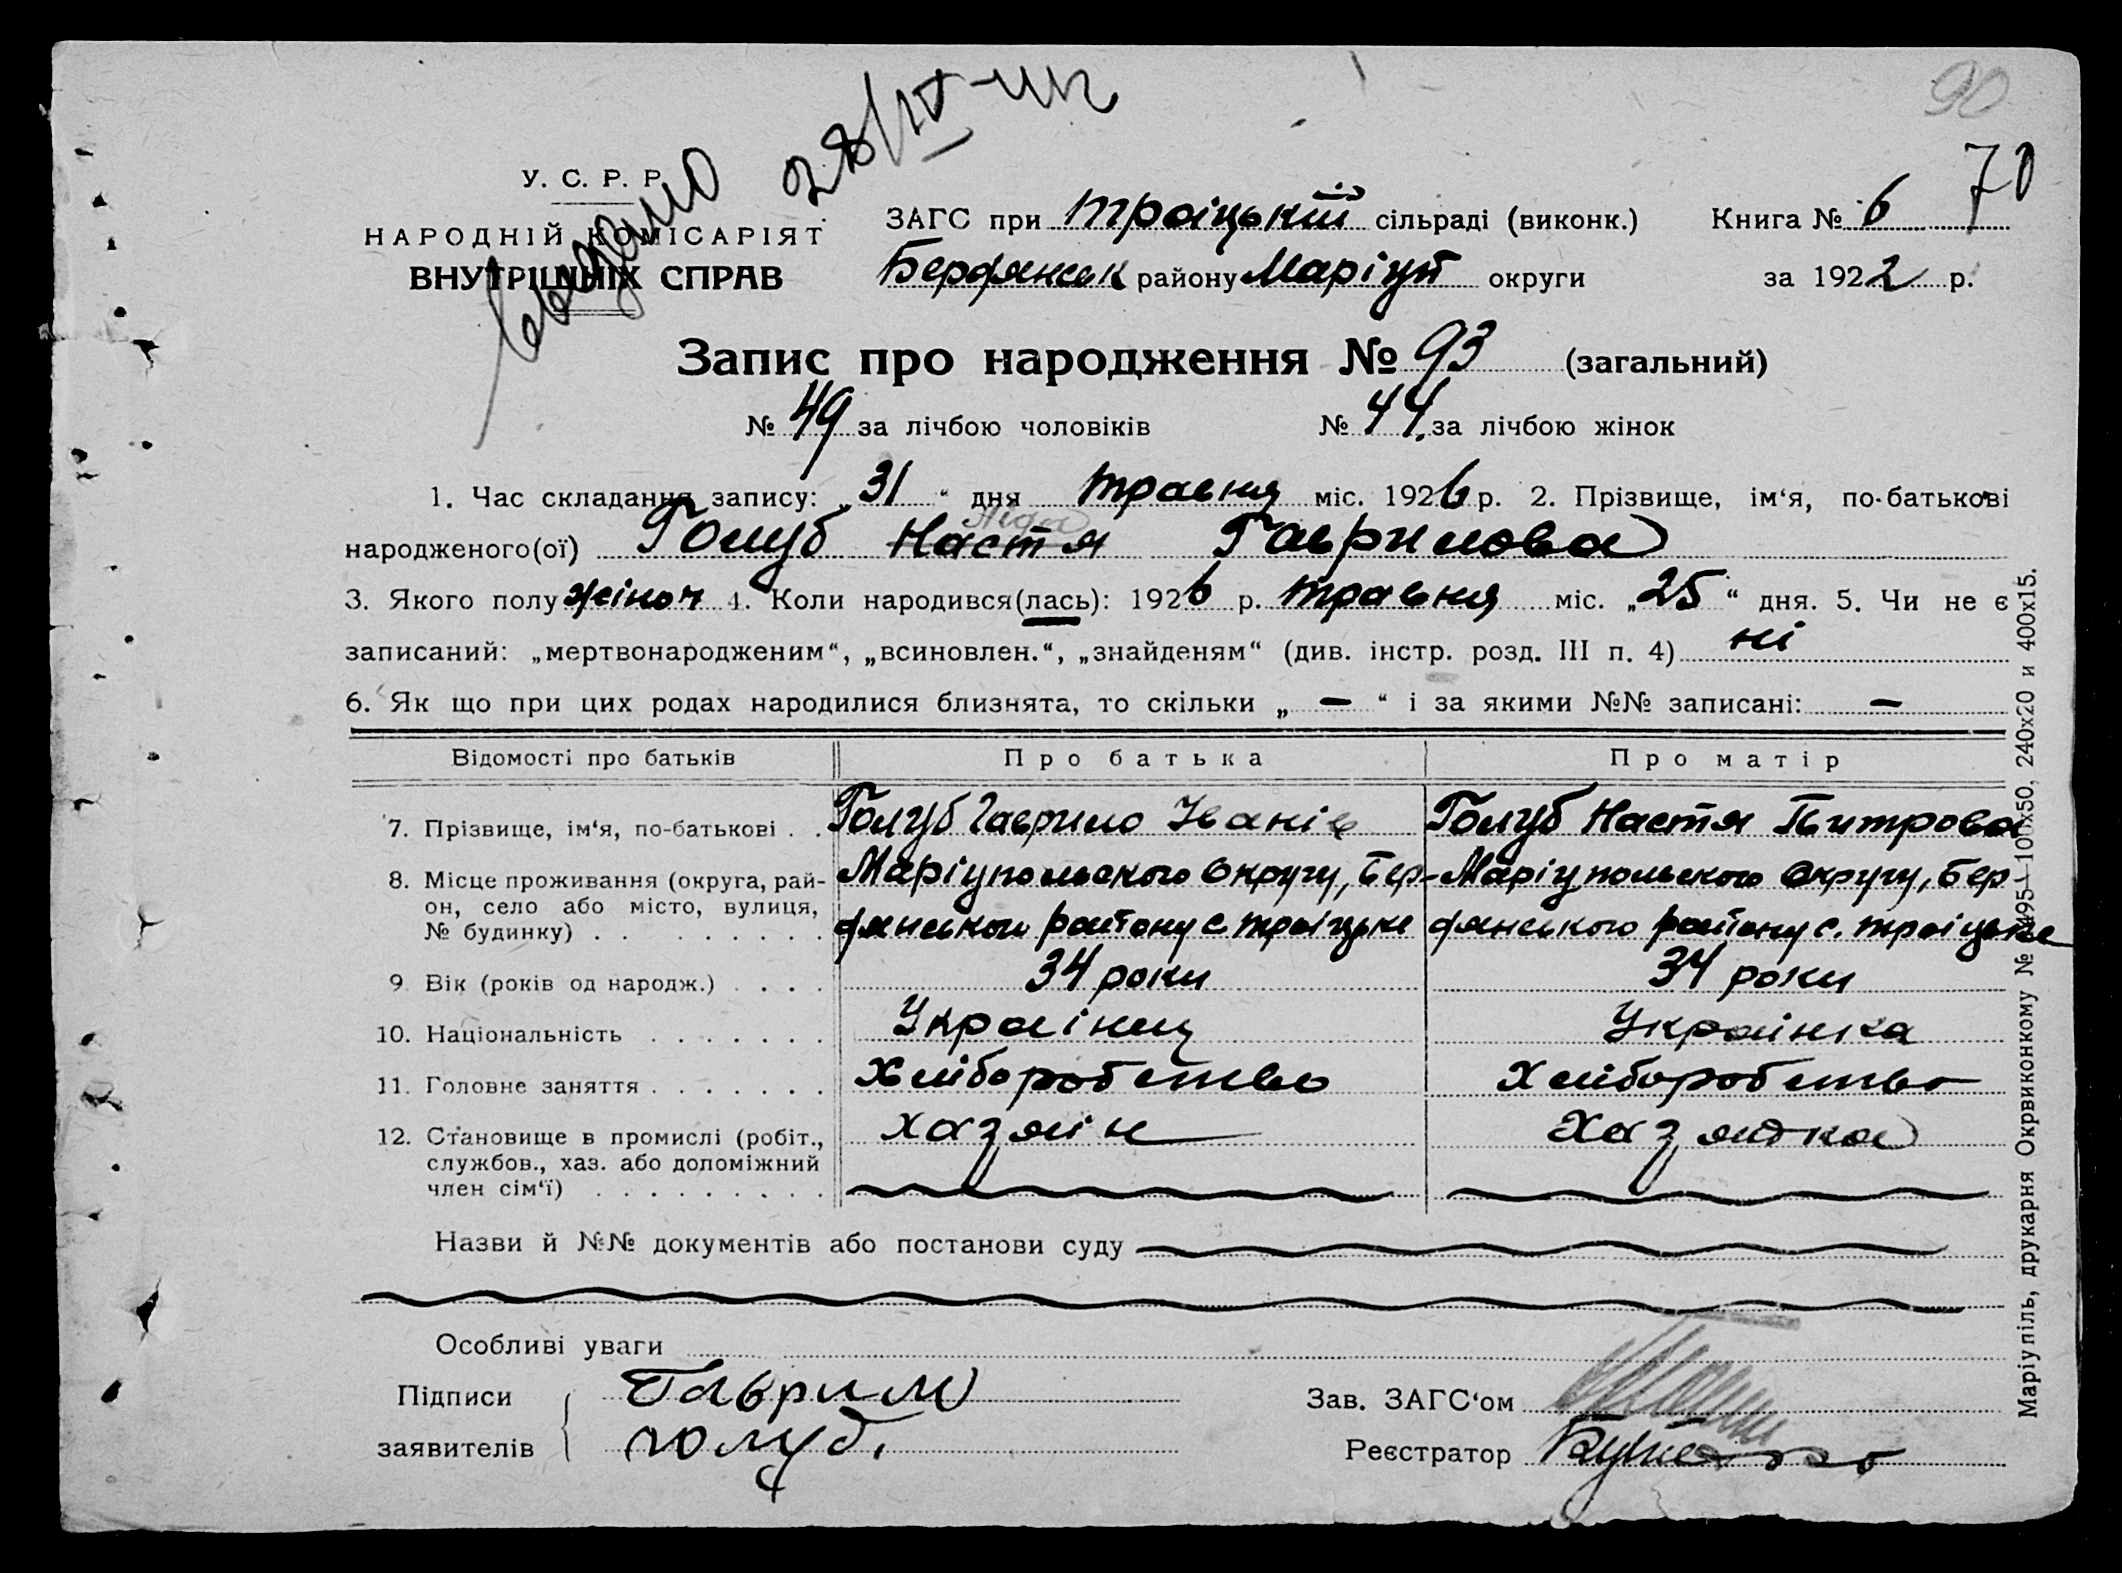 90
70
Видано 28/IV-
У. С. Р. Р.
НАРОДНІЙ КОМІСАРІЯТ
ВНУТРІШНІХ СПРАВ
ЗАГС при Троіцькій сільраді (виконк.) Книга № 6
Бердянськ району Маріуп округи за 1922 р.
Запис про народження № 93 (загальний)
№ 49 за лічбою чоловіків № 44 за лічбою жінок
1. Час складання запису: „31“ дня травня міс. 1926 р. 2. Прізвище, ім‘я, по-батькові
Ліда
народженого(ої) Голуб Настя Гаврилова
3. Якого полу жіноч 4. Коли народився(лась): 1926 р. травня міс. „25“ дня. 5. Чи не є
записаний: „мертвонародженим“, „всиновлен.“, „знайденям“ (див. інстр. розд. III п. 4) ні
6. Як що при цих родах народилися близнята, то скільки „ — “ і за якими №№ записані: —
Відомості про батьків Про батька Про матір
7. Прізвище, ім‘я, по-батькові . . Голуб Гаврило Іванів Голуб Настя Питрова
8. Місце проживання (округа, рай- Маріупольского Округу, Бер- Маріупольского Округу, Бер
он, село або місто, вулиця, дянського району с. Троіцьке дянського району с. Троіцьке
№ будинку) . . . . . . . . .
9. Вік (років од народж.) . . . . 34 роки 34 роки
10. Національність . . . . . . . Украінец Украінка
11. Головне заняття . . . . . . . Хліборобство Хліборобство
12. Становище в промислі (робіт., хазяін Хазяйка
службов., хаз. або допоміжний
член сім‘ї) . . . . . . . . .
Назви й №№ документів або постанови суду
Особливі уваги
Підписи Гаврил Зав. ЗАГС‘ом
заявителів голуб. Реєстратор
Маріупіль, друкарня Окрвиконкому № 495—100х50, 240х20 и 400х15.